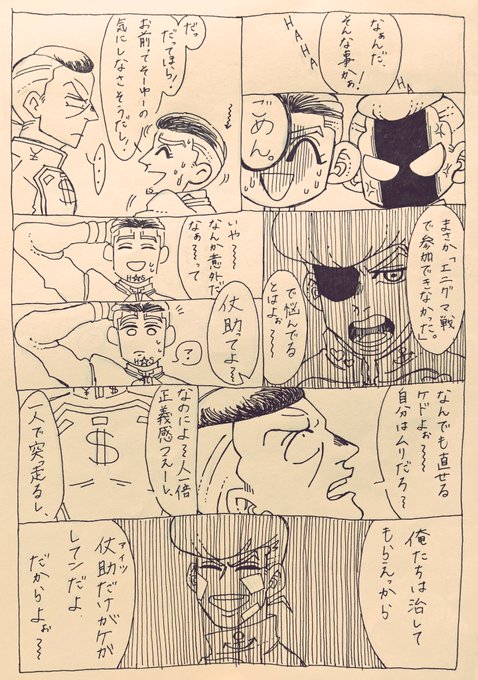 なぁんだ、
そんな事かぁ!
HAHA
HA
ごめん。
だっ
だってほら、
お前ってそーゆーの
気にしなさそうだし、
・・・
¥
$
まさか「エニグマ戦
で参加できなかった。」
で悩んでる
とはよぉ〜
いや〜〜
なんか意外だ
なぁ〜って
仗助ってよ〜
?
なんでも直せる
ケドよぉ〜〜
自分はムリだろ〜
なのによ〜人一倍
正義感つえーし、
一人で突走るし、
$
俺たちは治して
もらえっから
アイツ
仗助だけがケガ
してンだよ
だからよぉ〜